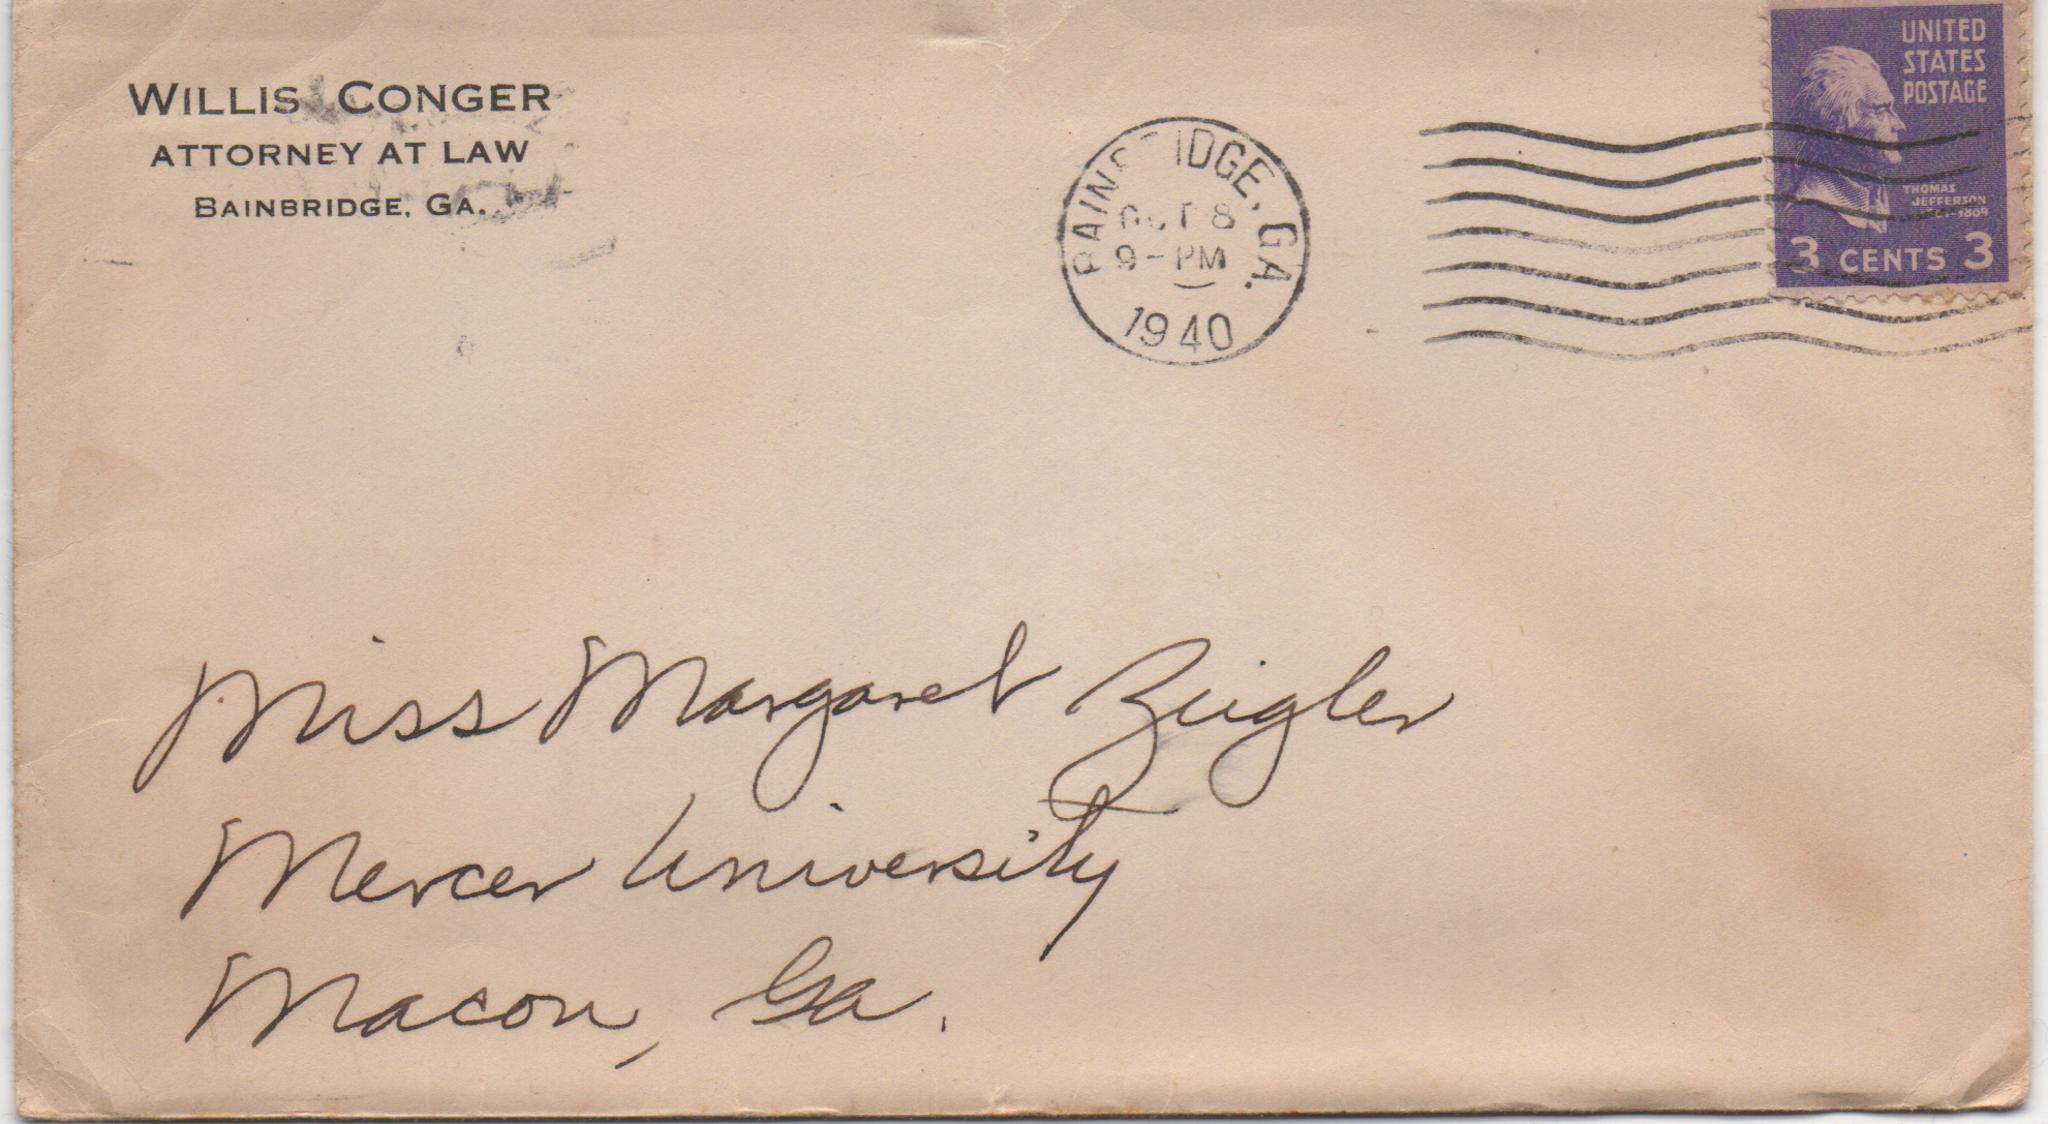 WILLIS CONGER
ATTORNEY AT LAW
BAINBRIDGE, GA.
BAINBRIDGE, GA.
OCT 8
9-PM
1940
UNITED
STATES
POSTAGE
THOMAS
JEFFERSON
1801-1809
3 CENTS 3
Miss Margaret Zeigler
Mercer University
Macon, Ga.